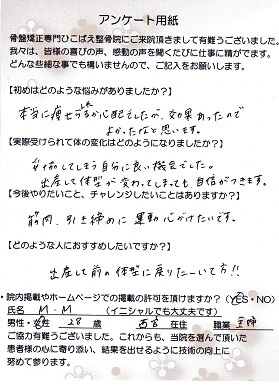 アンケート用紙
骨盤矯正専門ひこばえ整骨院にご来院頂きまして有難うございました。
我々は、皆様の喜びの声、感動の声を聞くたびに仕事に精がでます。
どんな些細な事でも構いませんので、ご記入をお願いします。
【初めはどのような悩みがありましたか？】
本当に痩せられるか心配でしたが、効果あったので
よかったなと思います。
【実際受けられて体の変化はどのようになりましたか？】
してしまう自分に良い機会でした。
出産して体型が変わってしまっても、自信がつきます。
【今後やりたいこと、チャレンジしたいことはありますか？】
筋肉、引き締めに運動心がけたいです。
【どのような人におすすめしたいですか？】
出産して前の体型に戻りたーい方!!
・院内掲載やホームページでの掲載の許可を頂けますか？（YES・NO）
氏名 M・M （イニシャルでも大丈夫です）
男性・女性 28 歳 西宮 在住 職業 主婦
ご協力有難うございました。これからも、当院を選んで頂いた
患者様の心に寄り添い、結果を出せるように技術の向上に
努めて参ります。